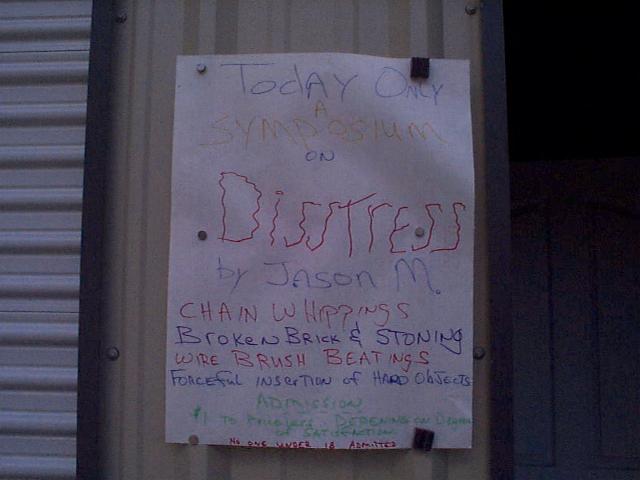 Today Only
A
SYMPOSIUM
ON
DISSTRESS
by JASON M.
CHAIN WHIPPINGS
BROKEN BRICK & STONING
WIRE BRUSH BEATINGS
FORCEFUL INSERTION OF HARD OBJECTS
ADMISSION
$1 TO DEPENDING ON
OF SATISFACTION
NO ONE UNDER 18 ADMITTED